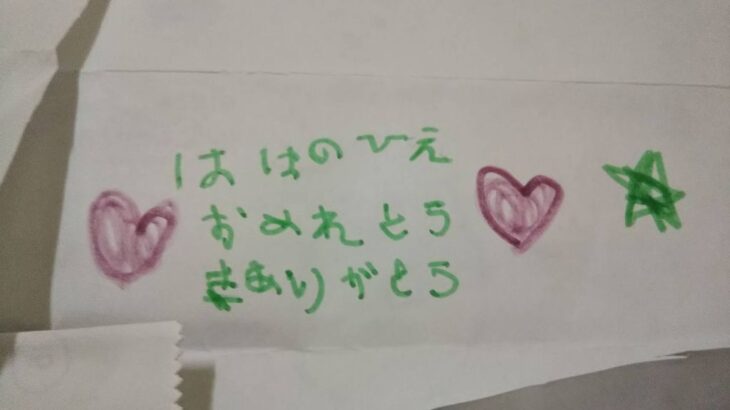 ははのひえ
おめれとう
ありがとう